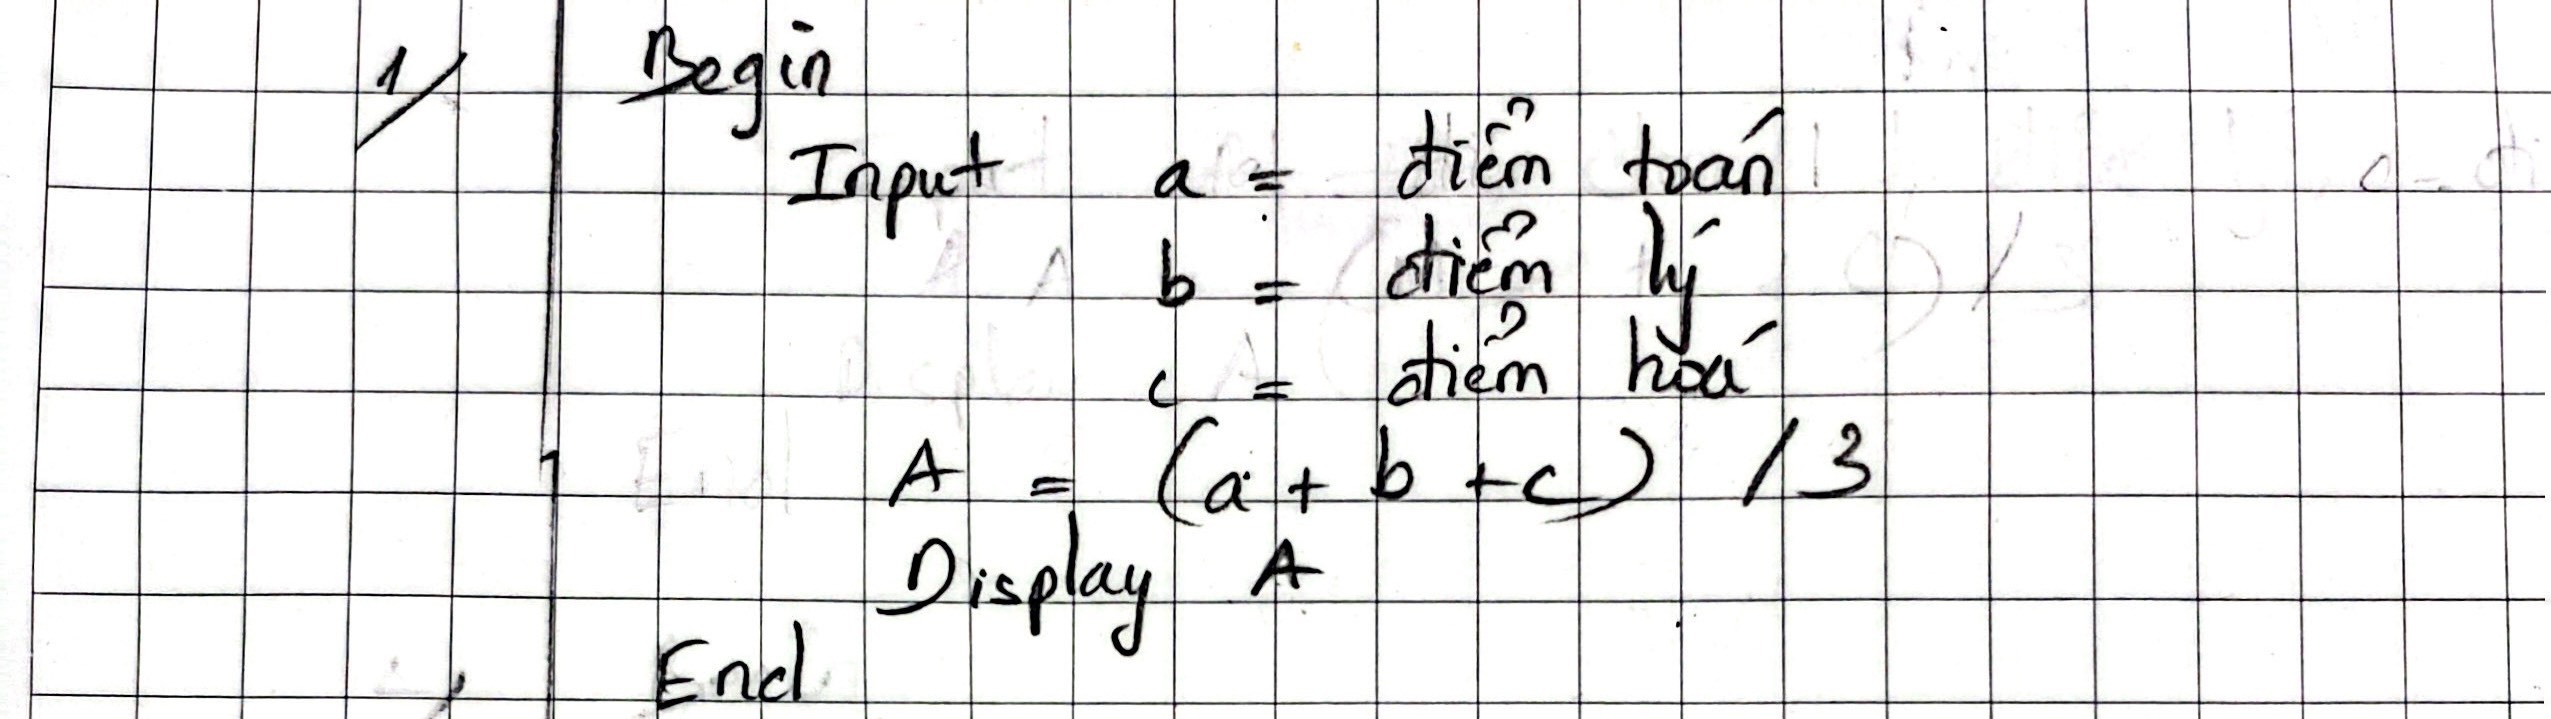 1/ Begin
Input a = điểm toán
b = điểm lý
c = điểm hoá
A = (a + b + c) / 3
Display A
End